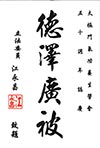 太極門氣功養生學會
五十週年誌慶
德澤廣被
立法委員
江永昌
致題